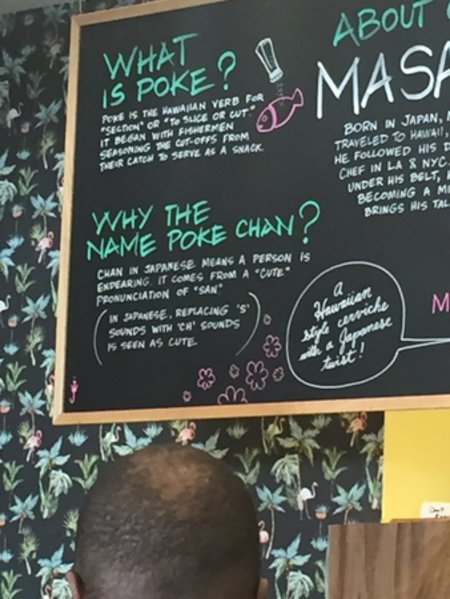 WHAT
IS POKE?
POKE IS THE HAWAIIAN VERB FOR
"SECTION" OR "TO SLICE OR CUT."
IT BEGAN WITH FISHERMEN
SEASONING THE CUT-OFFS FROM
THEIR CATCH TO SERVE AS A SNACK.
WHY THE
NAME POKE CHAN?
CHAN IN JAPANESE MEANS A PERSON IS
ENDEARING. IT COMES FROM A "CUTE"
PRONUNCIATION OF "SAN"
(IN JAPANESE, REPLACING 'S'
SOUNDS WITH 'CH' SOUNDS
IS SEEN AS CUTE.)
A
Hawaiian
style ceviche
with a Japanese
twist!
ABOUT
MASA
BORN IN JAPAN,
TRAVELED TO HAWAII,
HE FOLLOWED HIS
CHEF IN LA & NYC.
UNDER HIS BELT,
BECOMING A
BRINGS HIS
M